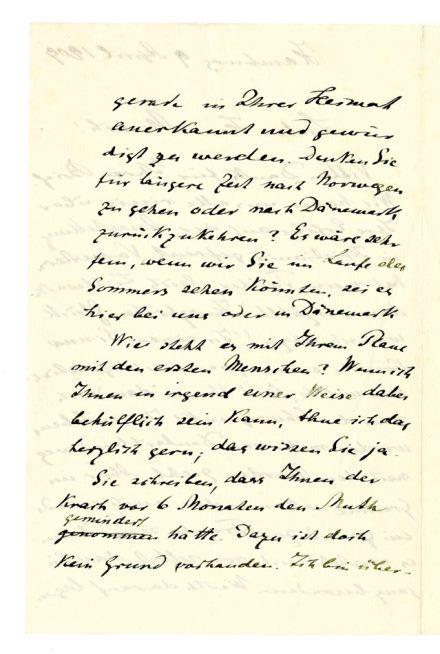 gerade in Ihrer Heimat
anerkannt und gewür
digt zu werden. Denken Sie
für längere Zeit nach Norwegen
zu gehen oder nach Dänemark
zurückzukehren? Es wäre sehr
fein, wenn wir Sie im Laufe des
Sommers sehen könnten, sei es
hier bei uns oder in Dänemark
Wie steht es mit Ihrem Plane
mit den ersten Menschen? Wenn ich
Ihnen in irgend einer Weise dabei
behülflich sein kann, thue ich das
herzlich gern; das wissen Sie ja.
Sie schreiben, dass Ihnen der
Krach vor 6 Monaten den Muth
gemindert
genommen hätte. Dazu ist doch
kein Grund vorhanden. Ich bin über-